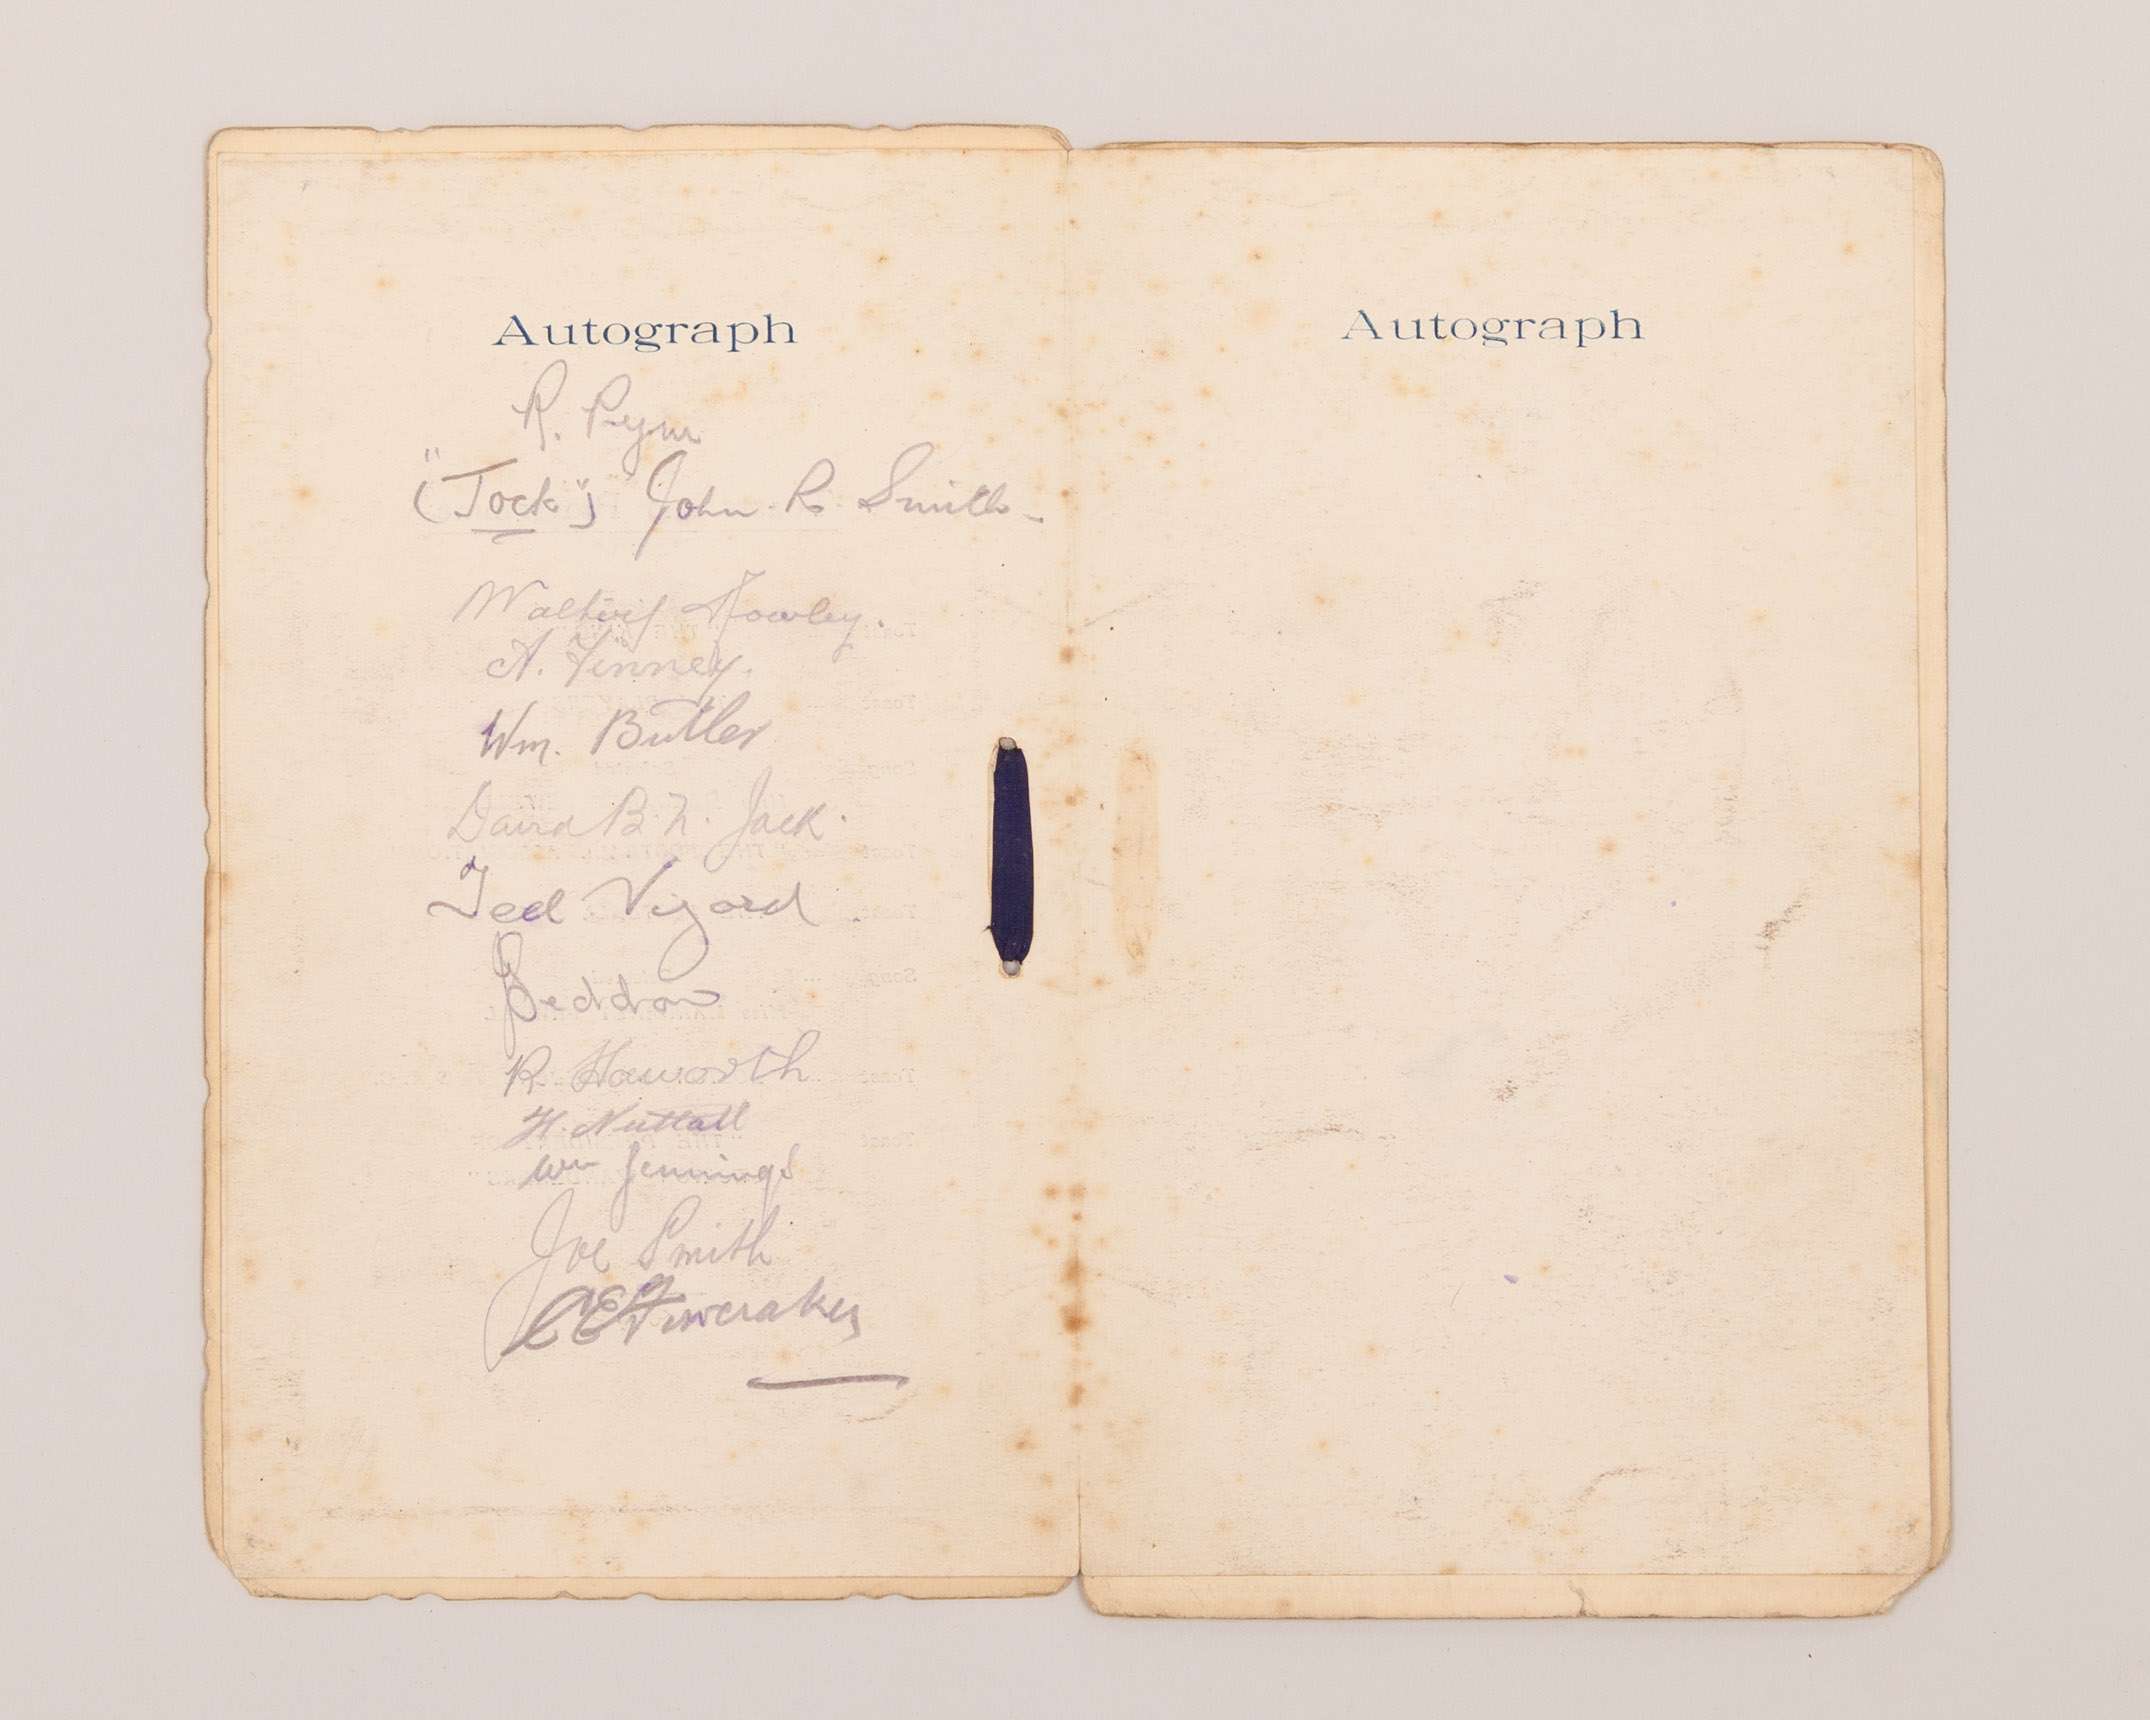 Autograph
R. Pym
("Jock") John R Smith
Walter Rowley.
A. Finney.
Wm. Butler
David B. N. Jack.
Ted Vizard
J Seddon
R Haworth
H. Nuttall
Wm Jennings
Joe Smith
Autograph